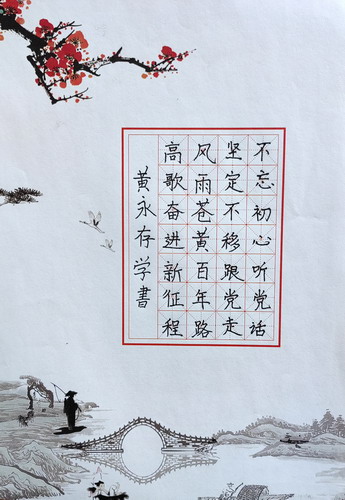 不忘初心听党话
坚定不移跟党走
风雨苍黄百年路
高歌奋进新征程
黄永存学書